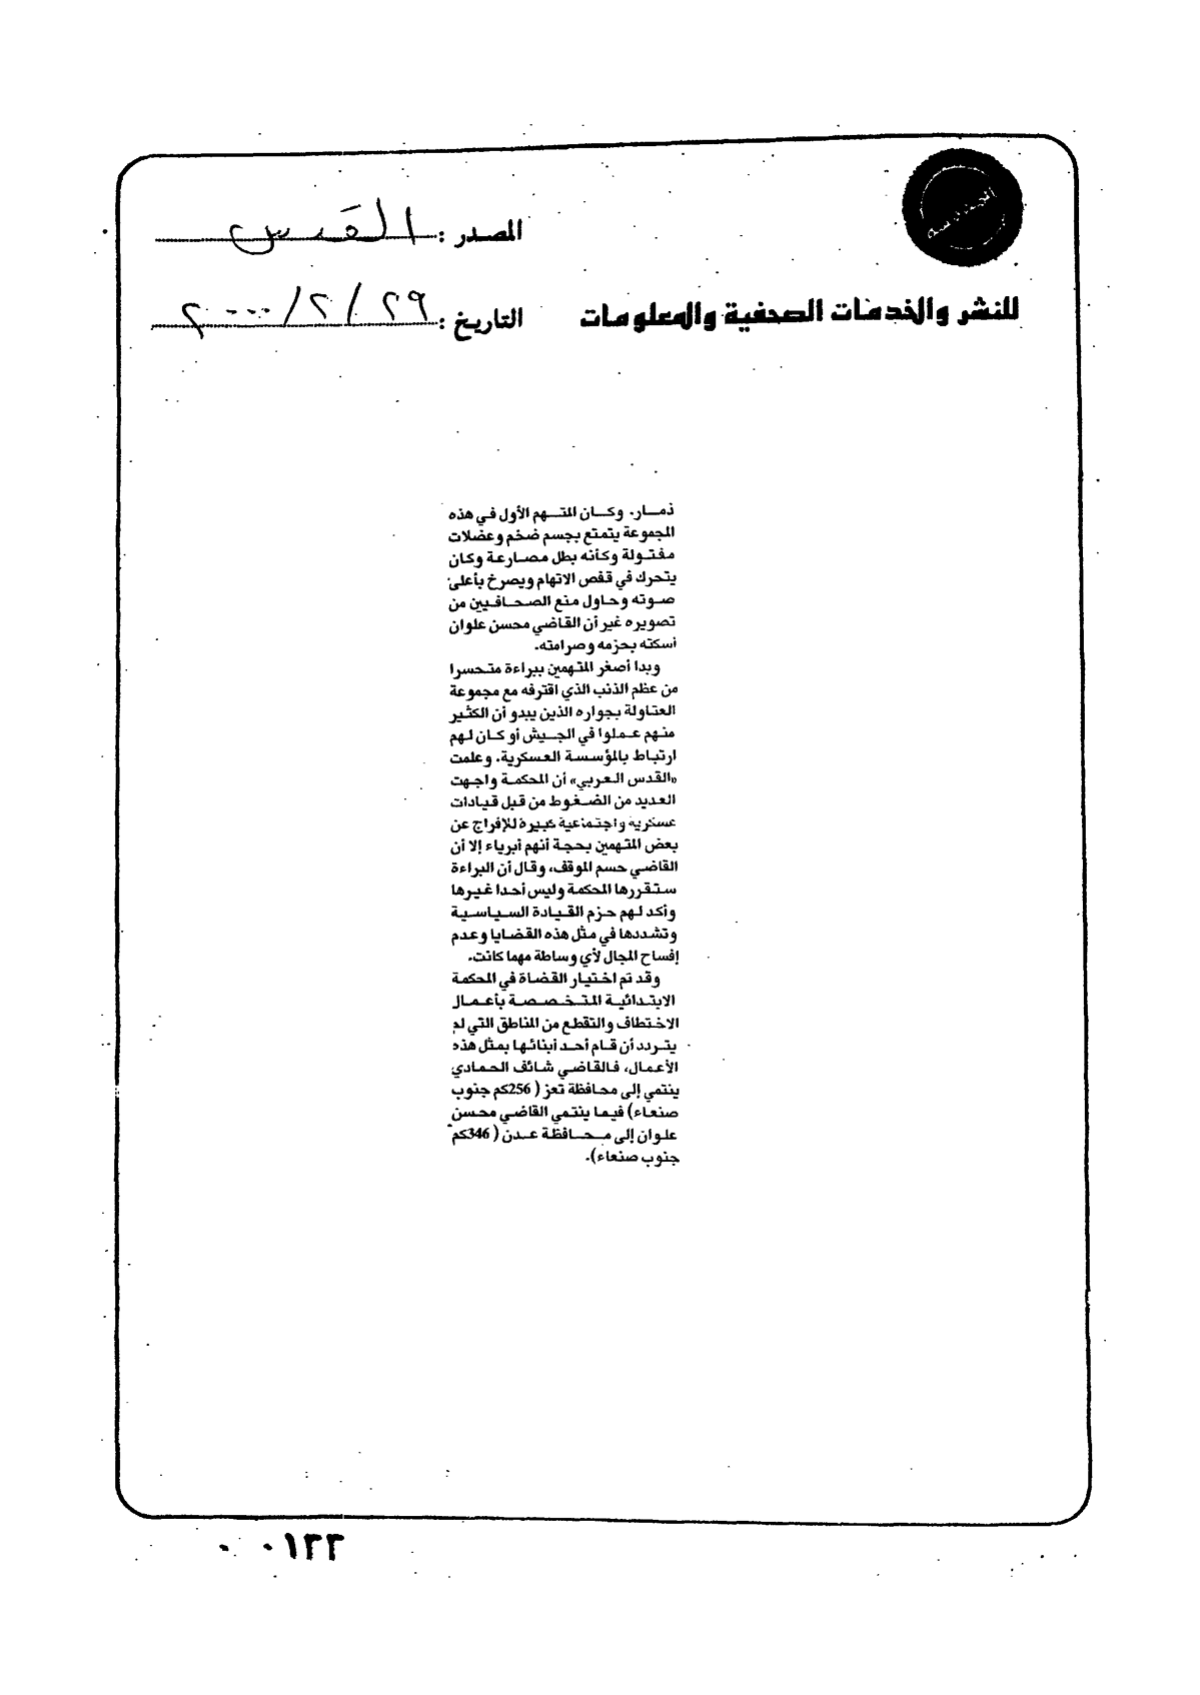 المصدر : القدس
للنشر والخدمات الصحفية والمعلومات
التاريخ : ٢٩ / ٢ / ٢٠٠٠
ذمار. وكان المتهم الأول في هذه
المجموعة يتمتع بجسم ضخم وعضلات
مفتولة وكأنه بطل مصارعة وكان
يتحرك في قفص الاتهام ويصرخ بأعلى
صوته وحاول منع الصحافيين من
تصويره غير أن القاضي محسن علوان
أسكته بحزمه وصرامته.
وبدا أصغر المتهمين ببراءة متحسرا
من عظم الذنب الذي اقترفه مع مجموعة
العتاولة بجواره الذين يبدو أن الكثير
منهم عملوا في الجيش أو كان لهم
ارتباط بالمؤسسة العسكرية. وعلمت
«القدس العربي» أن المحكمة واجهت
العديد من الضغوط من قبل قيادات
عسكرية واجتماعية كبيرة للإفراج عن
بعض المتهمين بحجة أنهم أبرياء إلا أن
القاضي حسم الموقف، وقال أن البراءة
ستقررها المحكمة وليس أحدا غيرها
وأكد لهم حزم القيادة السياسية
وتشددها في مثل هذه القضايا وعدم
إفساح المجال لأي وساطة مهما كانت.
وقد تم اختيار القضاة في المحكمة
الابتدائية المتخصصة بأعمال
الاختطاف والتقطع من المناطق التي لم
يتردد أن قام أحد أبنائها بمثل هذه
الأعمال، فالقاضي شائف الحمادي
ينتمي إلى محافظة تعز ( 256كم جنوب
صنعاء) فيما ينتمي القاضي محسن
علوان إلى محافظة عدن ( 346كم
جنوب صنعاء).
٠ ٠١٢٢